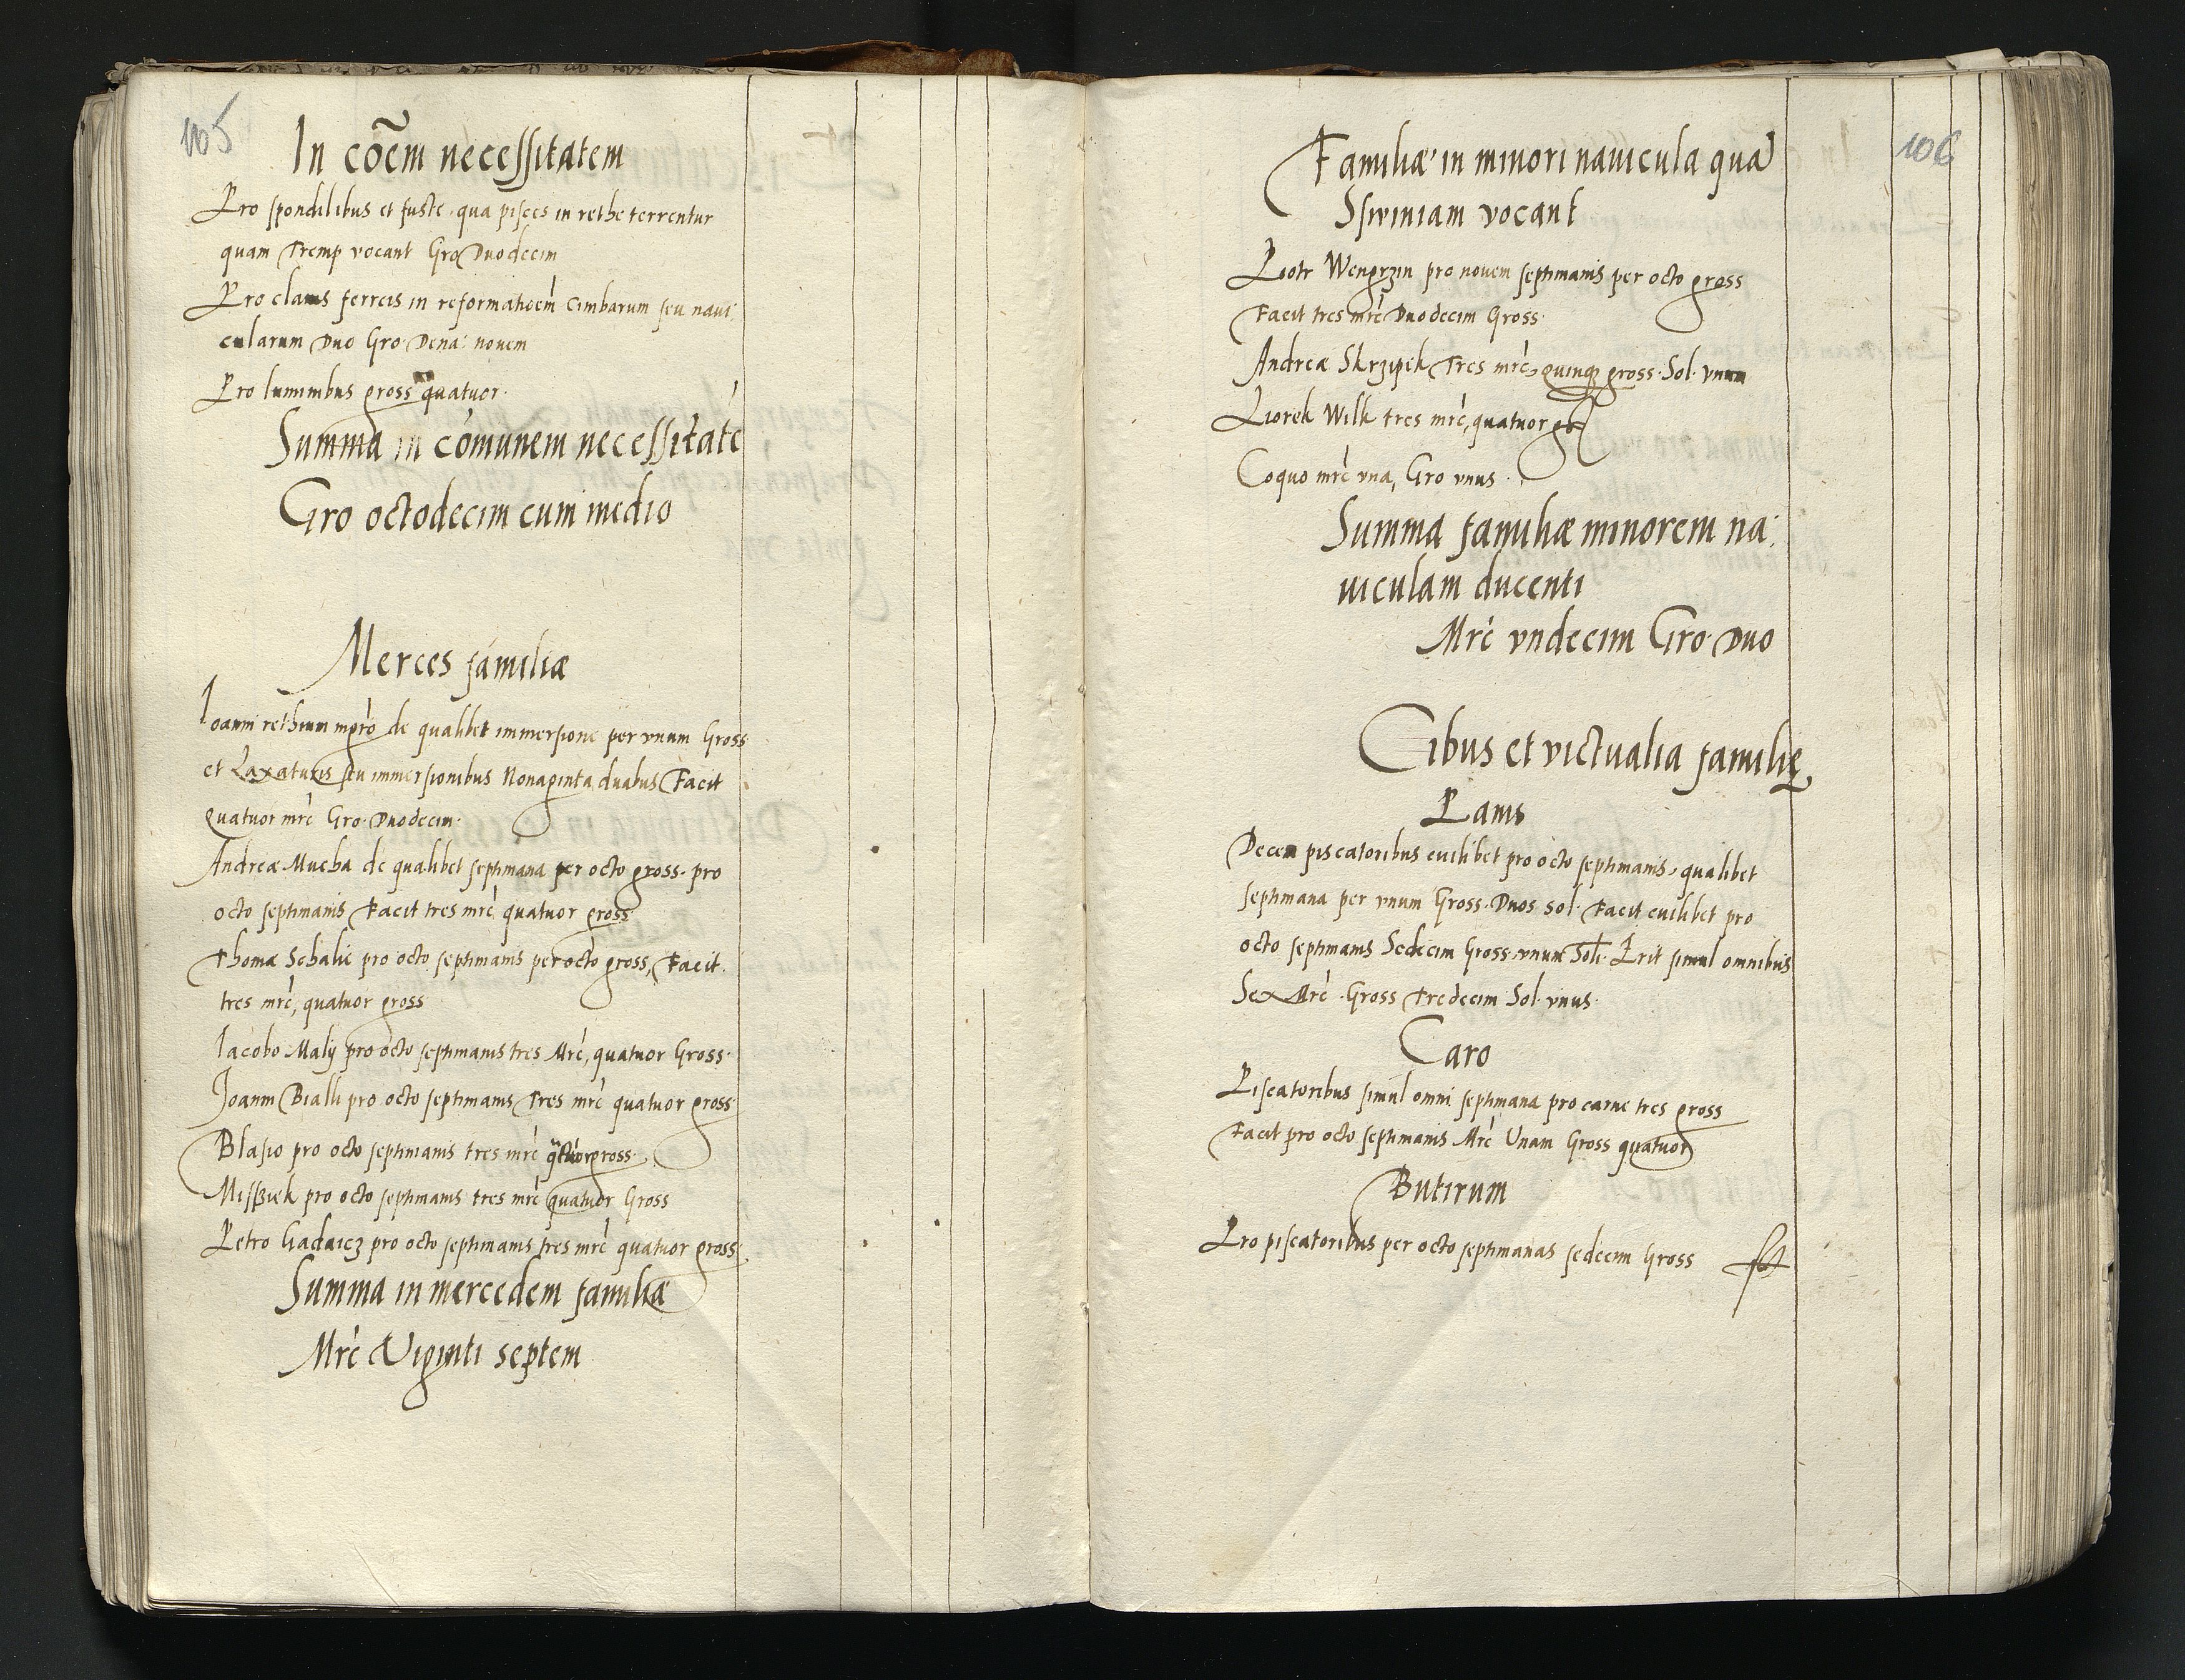 105
In cōēm necessitatem
Pro spondilibus et fuste, qua pisces in rethe terrentur
quam Tremp vocant Gro Duodecim
Pro clauis ferreis in reformatioēm Cimbarum seu naui
cularum Duo Gro. Dena: nouem
Pro luminibus gross quatuor.
Summa in comunem necessitatē
Gro octodecim cum medio
Merces familiæ
Ioanni rethium mgro de qualibet immersione per vnum Gross
et Laxaturis seu immersionibus Nonaginta duabus Facit
quatuor mrc Gro. Duodecim.
Andreæ Mucha de qualibet septimana per octo gross. pro
octo septimanis Facit tres mrc quatuor gross.
Thomæ Schalie pro octo septimanis per octo gross, Facit.
tres mrc, quatuor gross
Iacobo Maly pro octo septimanis tres Mrc, quatuor Gross.
Joanni Bialli pro octo septimanis Tres mrc quatuor gross
Blasio pro octo septimanis tres mrc quatuor gross.
Misszek pro octo septimanis tres mrc quatuor Gross
Petro Gadaicz pro octo septimanis tres mrc quatuor gross.
Summa in mercedem familiæ
Mrc Viginti septem
106
Familiæ in minori nauicula quā
Ssiviniam vocant
Piotr Wengrzin pro nouem septimanis per octo gross
Facit tres mrc Duodecim Gross.
Andreæ Skrzipek Tres mrc, quinq; gross. Sol. vnum
Piorek Wilk tres mrc, quatuor gr
Coquo mrc vna, Gro vnus.
Summa familiæ minorem na:
uiculam ducenti
Mrc vndecim Gro. Duo
Cibus et victualia familię
Panis
Decem piscatoribus cuilibet pro octo septimanis, qualibet
septimana per vnum Gross. Duos sol. Facit cuilibet pro
octo septimanis Sedecim Gross. vnum Soli. Erit simul omnibus
Sex Mrc. Gross Tredecim Sol. vnus.
Caro
Piscatoribus simul omni septimana pro carne tres gross
Facit pro octo septimanis Mrc Unam Gross quatuor
Butirum
Pro piscatoribus per octo septimanas sedecim Gross